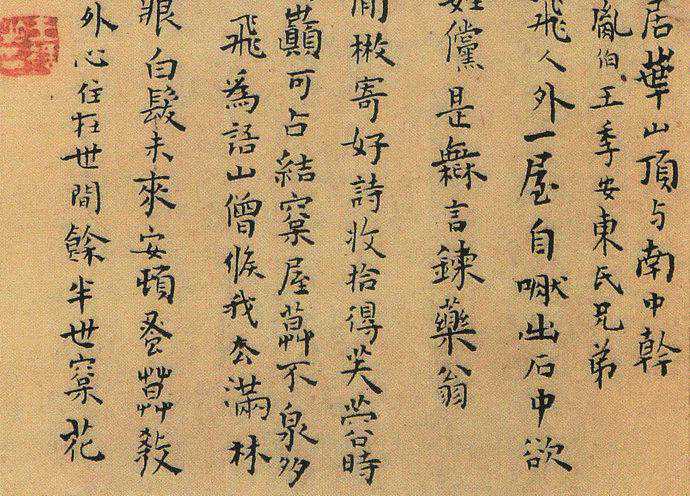 居華山頂与南中幹
胤伯王季安東民兄弟
飛人外一屋自嘯出石中欲
儻是無言鍊藥翁
閒楸寄好詩收拾得芙蓉時
巔可占結窠屋葛不泉多
飛為語山僧候我衣滿林
白髮未來安頓蚤葛教
外心住在世間餘半世窠花